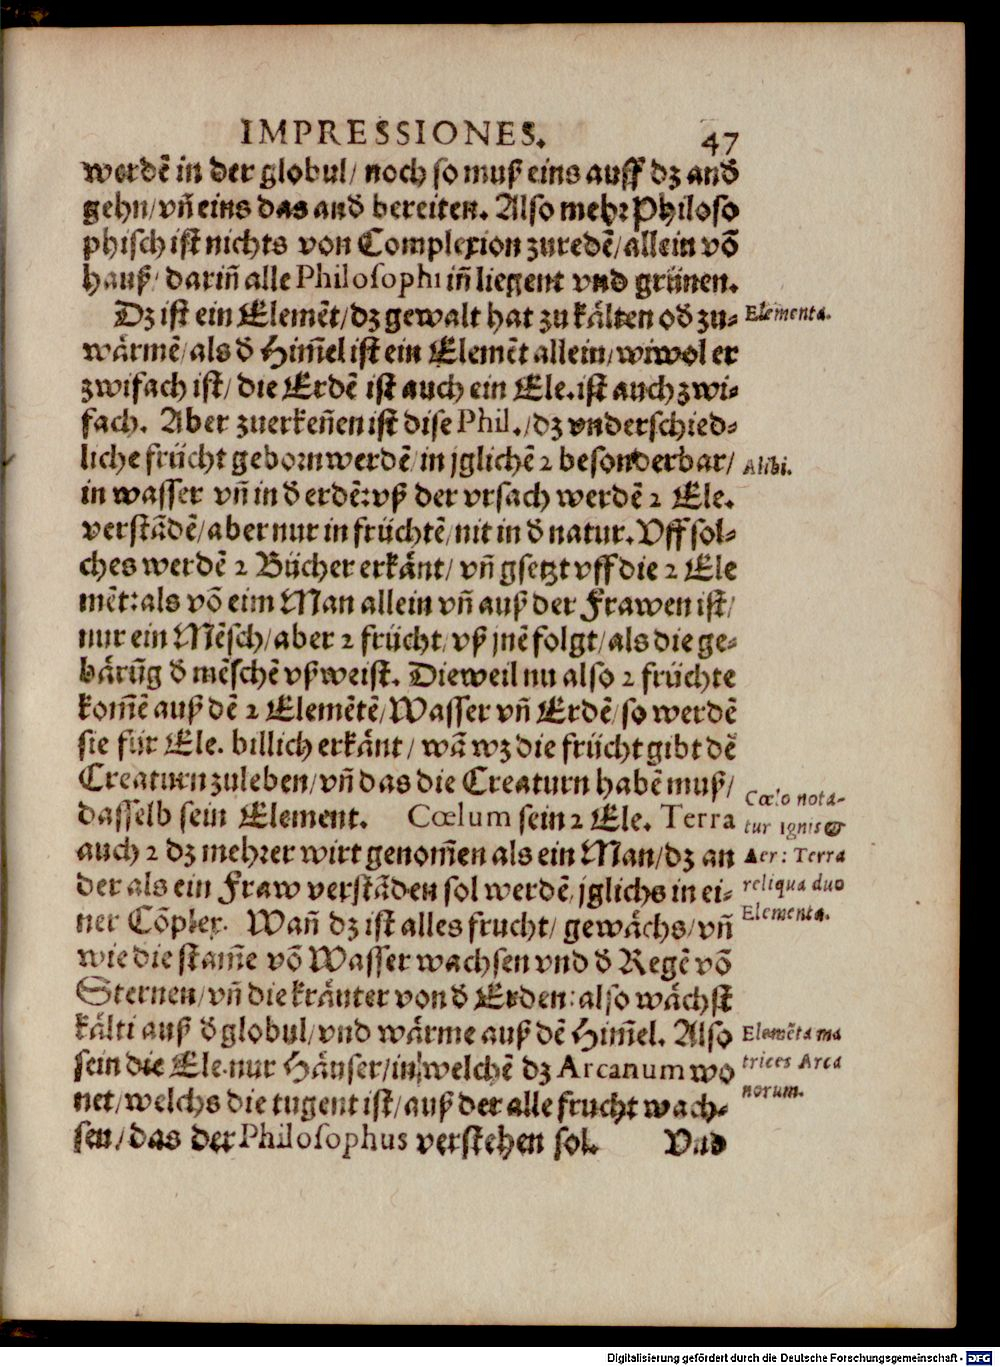 IMPRESSIONES. 47
werdẽ in der globul/ noch so muß eins auff dz and
gehn/vñ eins das and bereiten. Also mehr Philoso
phisch ist nichts von Complexion zuredẽ/allein võ
hauß/ dariñ alle Philosophi iñ liegent vnd grünen.
Dz ist ein Elemẽt/dz gewalt hat zu kälten od zu-
wärmẽ/als d Him̃el ist ein Elemẽt allein/wiwol er
zwifach ist/ die Erdẽ ist auch ein Ele. ist auch zwi-
fach. Aber zuerkeñen ist dise Phil./dz vnderschied-
liche frücht geborn werdẽ/in jglichẽ 2 besonderbar/
in wasser vñ in d erdẽ: vß der vrsach werdẽ 2 Ele.
verstãdẽ/aber nur in früchtẽ/nit in d natur. Vff sol-
ches werdẽ 2 Bücher erkänt/ vñ gsetzt vff die 2 Ele
mẽt: als võ eim Man allein vñ auß der Frawen ist/
nur ein Mẽsch/aber 2 frücht/vß jnẽ folgt/als die ge-
bärũg d mẽschẽ vßweist. Dieweil nu also 2 früchte
kom̃ẽ auß dẽ 2 Elemẽtẽ/Wasser vñ Erdẽ/so werdẽ
sie für Ele. billich erkänt/ wã wz die frücht gibt dẽ
Creaturn zuleben/vñ das die Creaturn habẽ muß/
dasselb sein Element. Cœlum sein 2 Ele. Terra
auch 2 dz mehrer wirt genom̃en als ein Man/dz an
der als ein Fraw verstãden sol werdẽ/jglichs in ei-
ner Cõplex. Wañ dz ist alles frucht/ gewächs/vñ
wie die stam̃e võ Wasser wachsen vnd d Regẽ võ
Sternen/vñ die kräuter von d Erden: also wächst
kälti auß d globul/vnd wärme auß dẽ Him̃el. Also
sein die Ele. nur Häuser/in welchẽ dz Arcanum wo
net/welchs die tugent ist/auß der alle frucht wach-
sen/das der Philosophus verstehen sol. Vnd
Elementa.
Alibi.
Cœlo nota-
tur ignis &
Aer: Terra
reliqua duo
Elementa.
Elemẽta ma
trices Arca
norum.
Digitalisierung gefördert durch die Deutsche Forschungsgemeinschaft - DFG